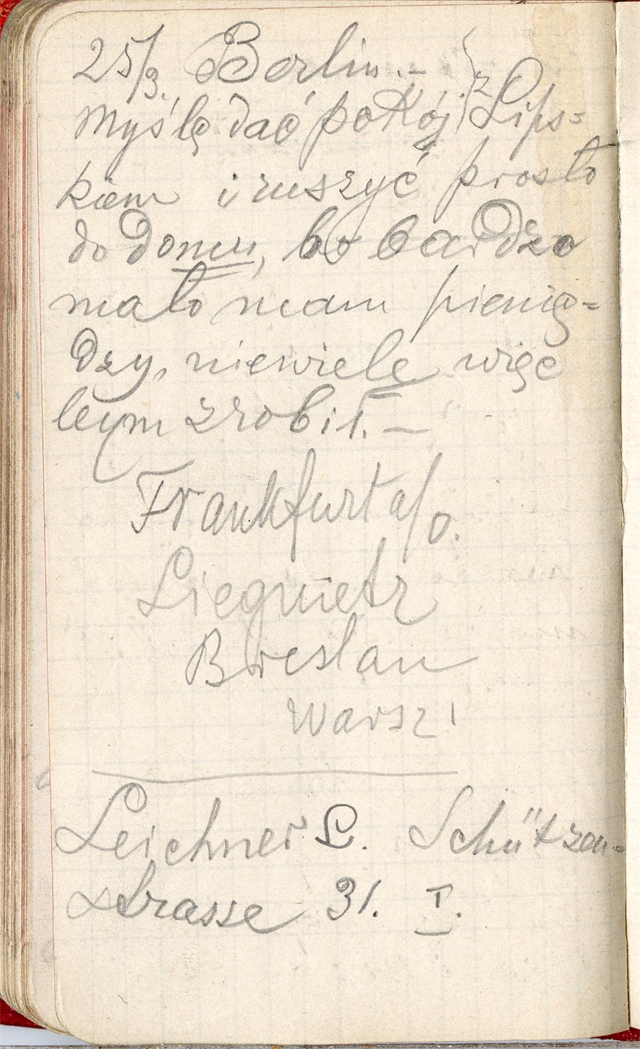 25/3. Berlin. –
Myślę dać pokój z Lips=
kiem i ruszyć prosto
do domu, bo bardzo
mało mam pienię=
dzy, niewiele więc
bym zrobił. –
Frankfurt a/o.
Liegnietz
Breslau
Warsz!
Leichner L. Schützen=
strasse 31. I.